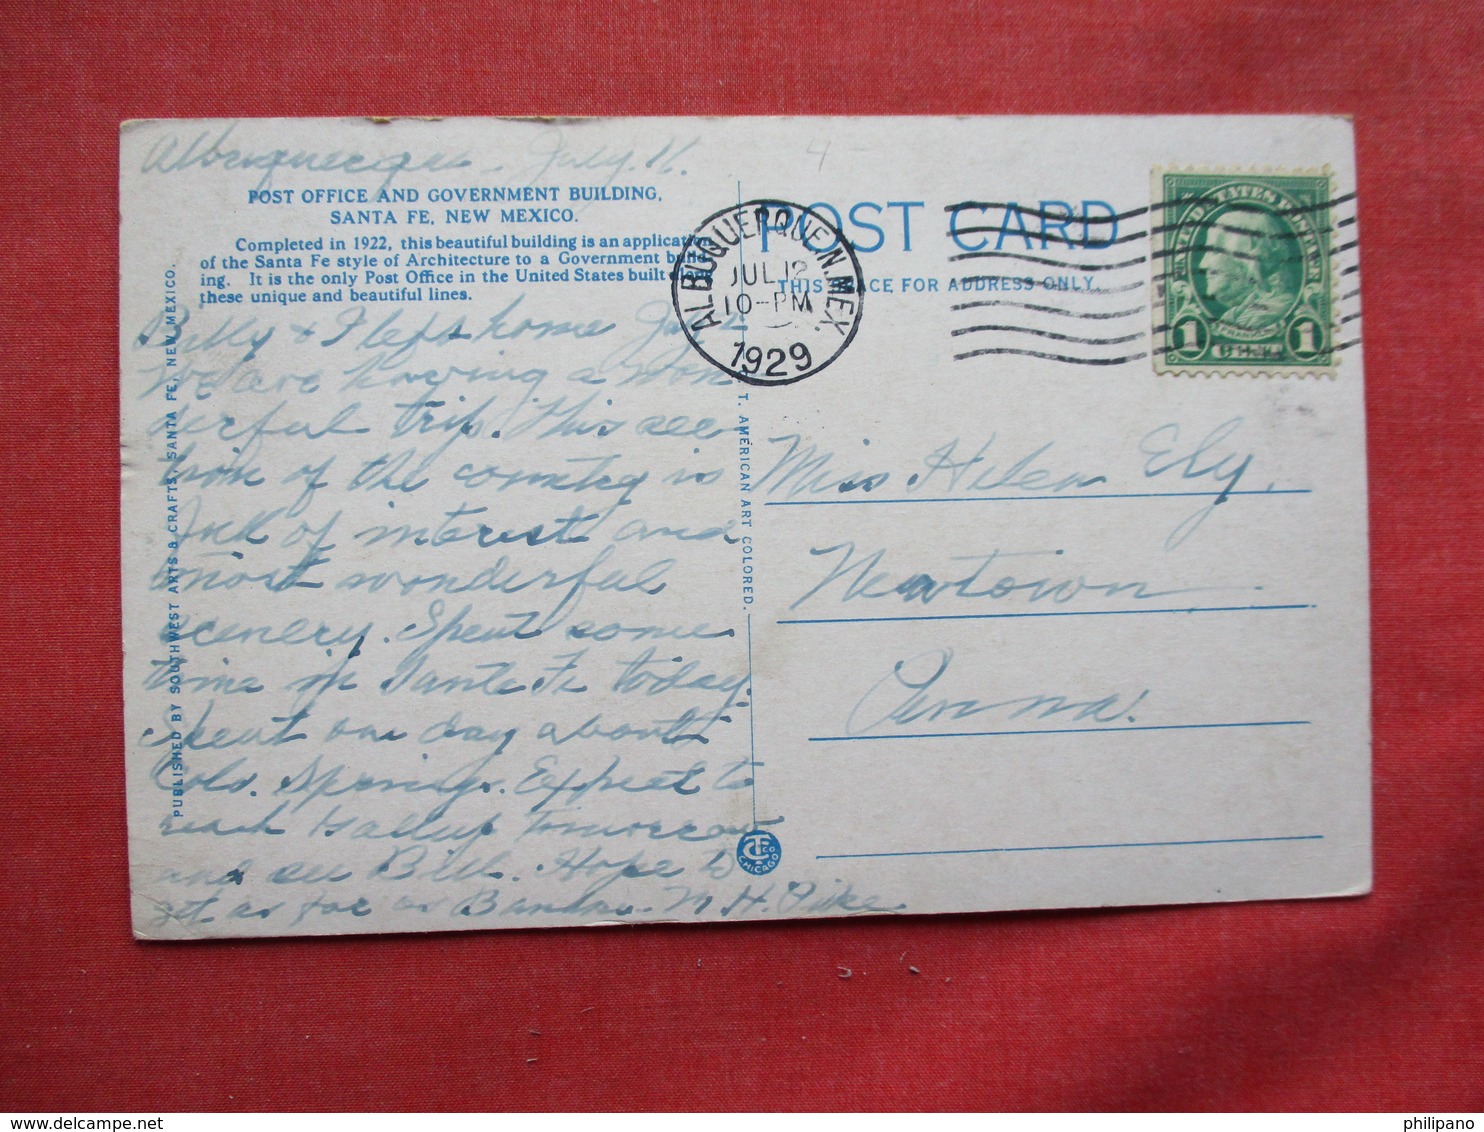 Albuquerque July 11.
POST OFFICE AND GOVERNMENT BUILDING,
SANTA FE, NEW MEXICO.
Completed in 1922, this beautiful building is an application
of the Santa Fe style of Architecture to a Government build-
ing. It is the only Post Office in the United States built
these unique and beautiful lines.
Billy & I left home July
We are having a won
derful trip. This sec
tion of the country is
full of interest and
most wonderful
scenery. Spent some
time in Santa Fe today.
Spent one day about
Colo. Springs. Expect to
reach Gallup tomorrow
and see Bill. Hope to
get as far as M. H. Pike
PUBLISHED BY SOUTHWEST ARTS & CRAFTS, SANTA FE, NEW MEXICO.
C. T. AMERICAN ART COLORED.
CTCCo
CHICAGO
POST CARD
THIS SPACE FOR ADDRESS ONLY.
ALBUQUERQUE N. MEX.
JUL 12
10-PM
1929
UNITED STATES POSTAGE
FRANKLIN
1 CENT 1
Miss Helen Ely,
Newtown
Penna.
4
philipano